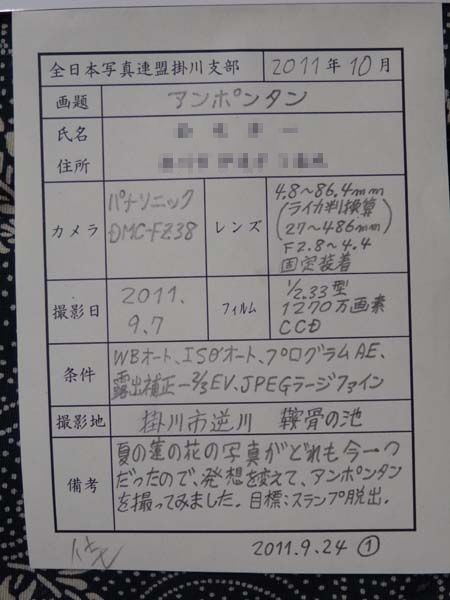 全日本写真連盟掛川支部 2011年10月
画題 アンポンタン
氏名
住所
カメラ パナソニック DMC-FZ38
レンズ 4.8~86.4mm
(ライカ判換算
27~486mm)
F2.8~4.4
固定装着
撮影日 2011.
9.7
フィルム 1/2.33型
1270万画素
CCD
条件 WBオート、ISOオート、プログラムAE、
露出補正-2/3EV、JPEGラージファイン
撮影地 掛川市逆川 鞍骨の池
備考 夏の蓮の花の写真がどれも今一つ
だったので、発想を変えて、アンポンタン
を撮ってみました。目標:スランプ脱出.
2011.9.24 ①